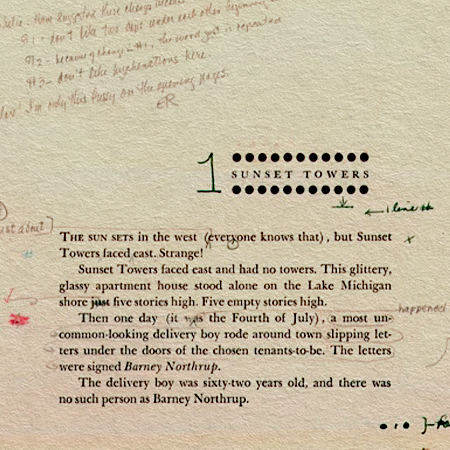 #1 - don't like two caps under each other beginning
#2 - because of change in #1, the word just is repeated
#3 - don't like hyphenations here
I'm only this fussy on the opening pages.
ER
1
SUNSET TOWERS
1 line #
just about
THE SUN SETS in the west (everyone knows that), but Sunset
Towers faced east. Strange!
Sunset Towers faced east and had no towers. This glittery,
glassy apartment house stood alone on the Lake Michigan
shore just five stories high. Five empty stories high.
Then one day (it was the Fourth of July), a most un-
happened
common-looking delivery boy rode around town slipping let-
ters under the doors of the chosen tenants-to-be. The letters
were signed Barney Northrup.
The delivery boy was sixty-two years old, and there was
no such person as Barney Northrup.